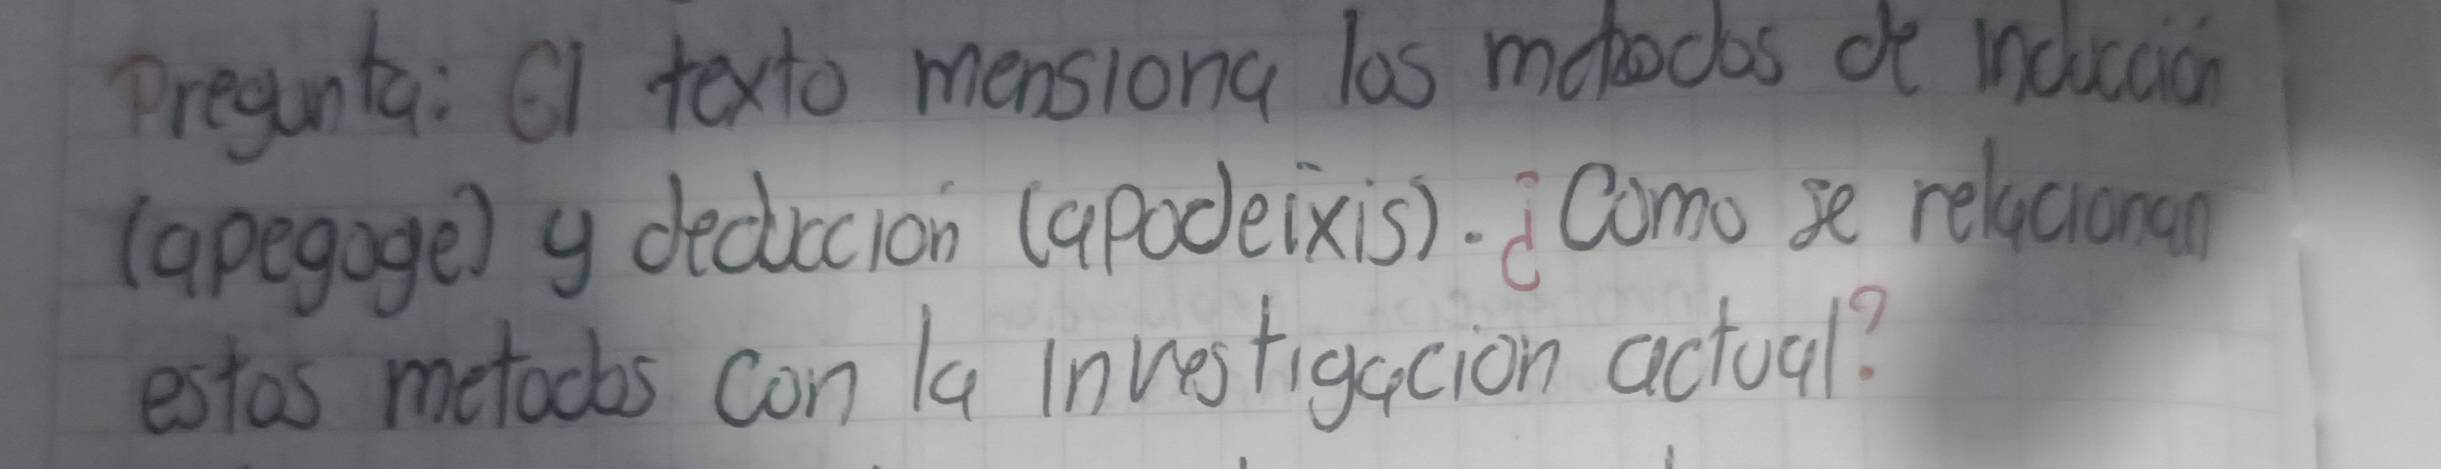 Pregunta: El texto mensiona los metodos de inducción
(apegoge) y deducción (apodeixis). ¿Como se relacionan
estos metodos con la investigacion actual?